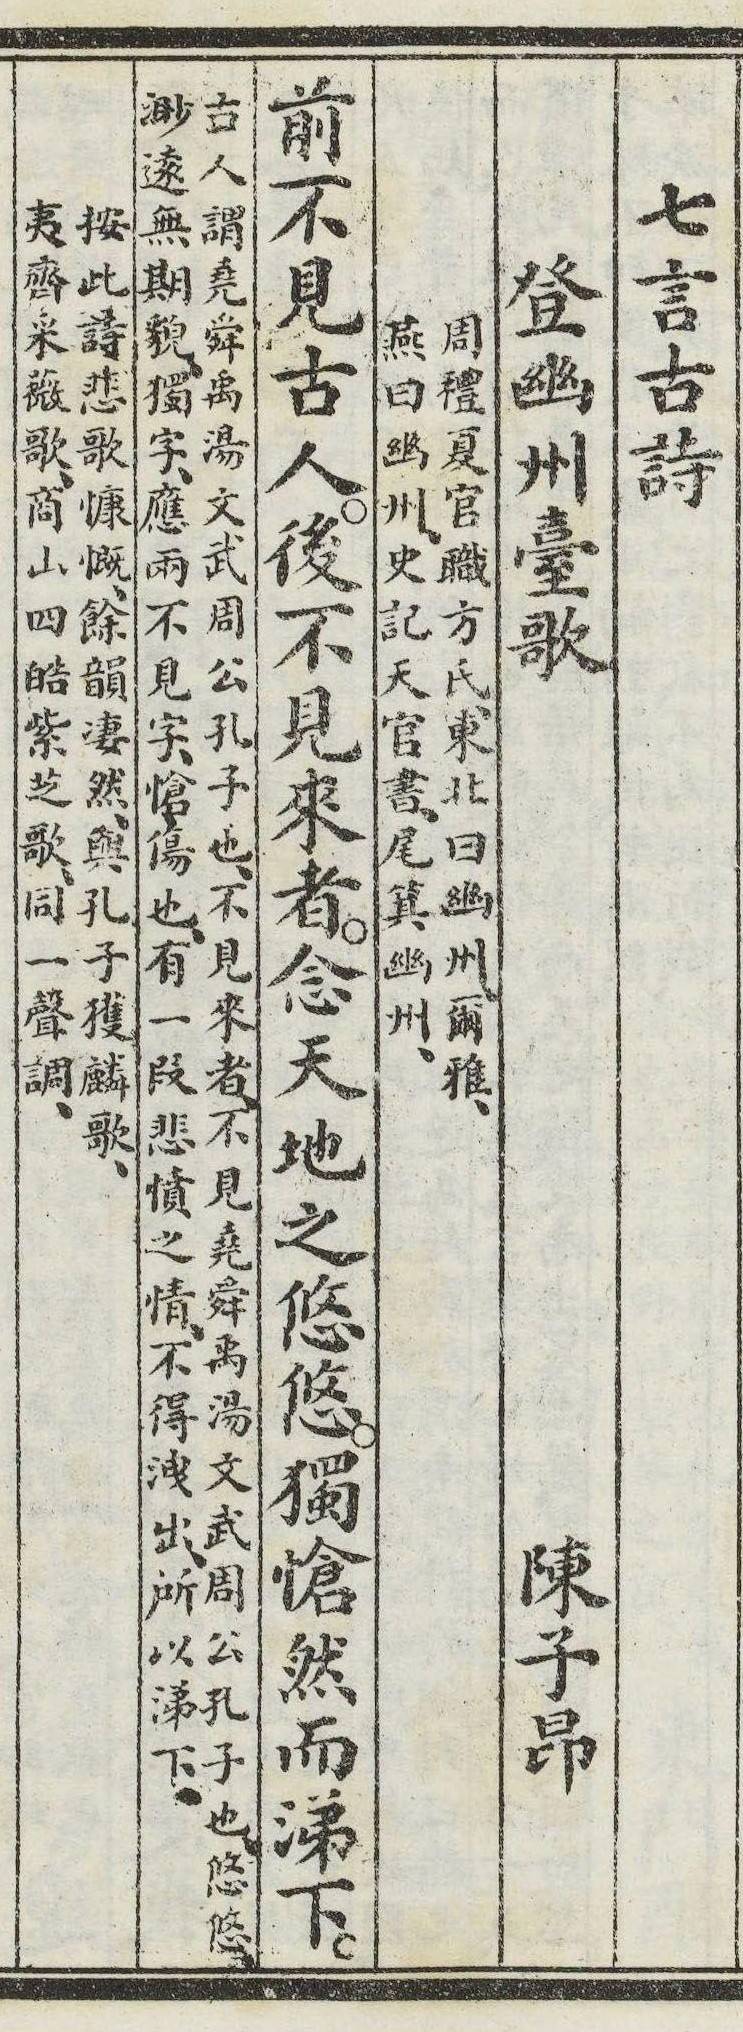 七言古詩
登幽州臺歌 陳子昂
周禮夏官職方氏、東北曰幽州、爾雅、
燕曰幽州、史記天官書、尾箕幽州、
前不見古人。後不見來者。念天地之悠悠。獨愴然而涕下。
古人謂堯舜禹湯文武周公孔子也、不見來者、不見堯舜禹湯文武周公孔子也、悠悠、
渺遠無期貌、獨字、應兩不見字、愴傷也、有一段悲憤之情、不得洩出、所以涕下、
按此詩悲歌慷慨、餘韻凄然、與孔子獲麟歌、
夷齊采薇歌、商山四皓紫芝歌、同一聲調、